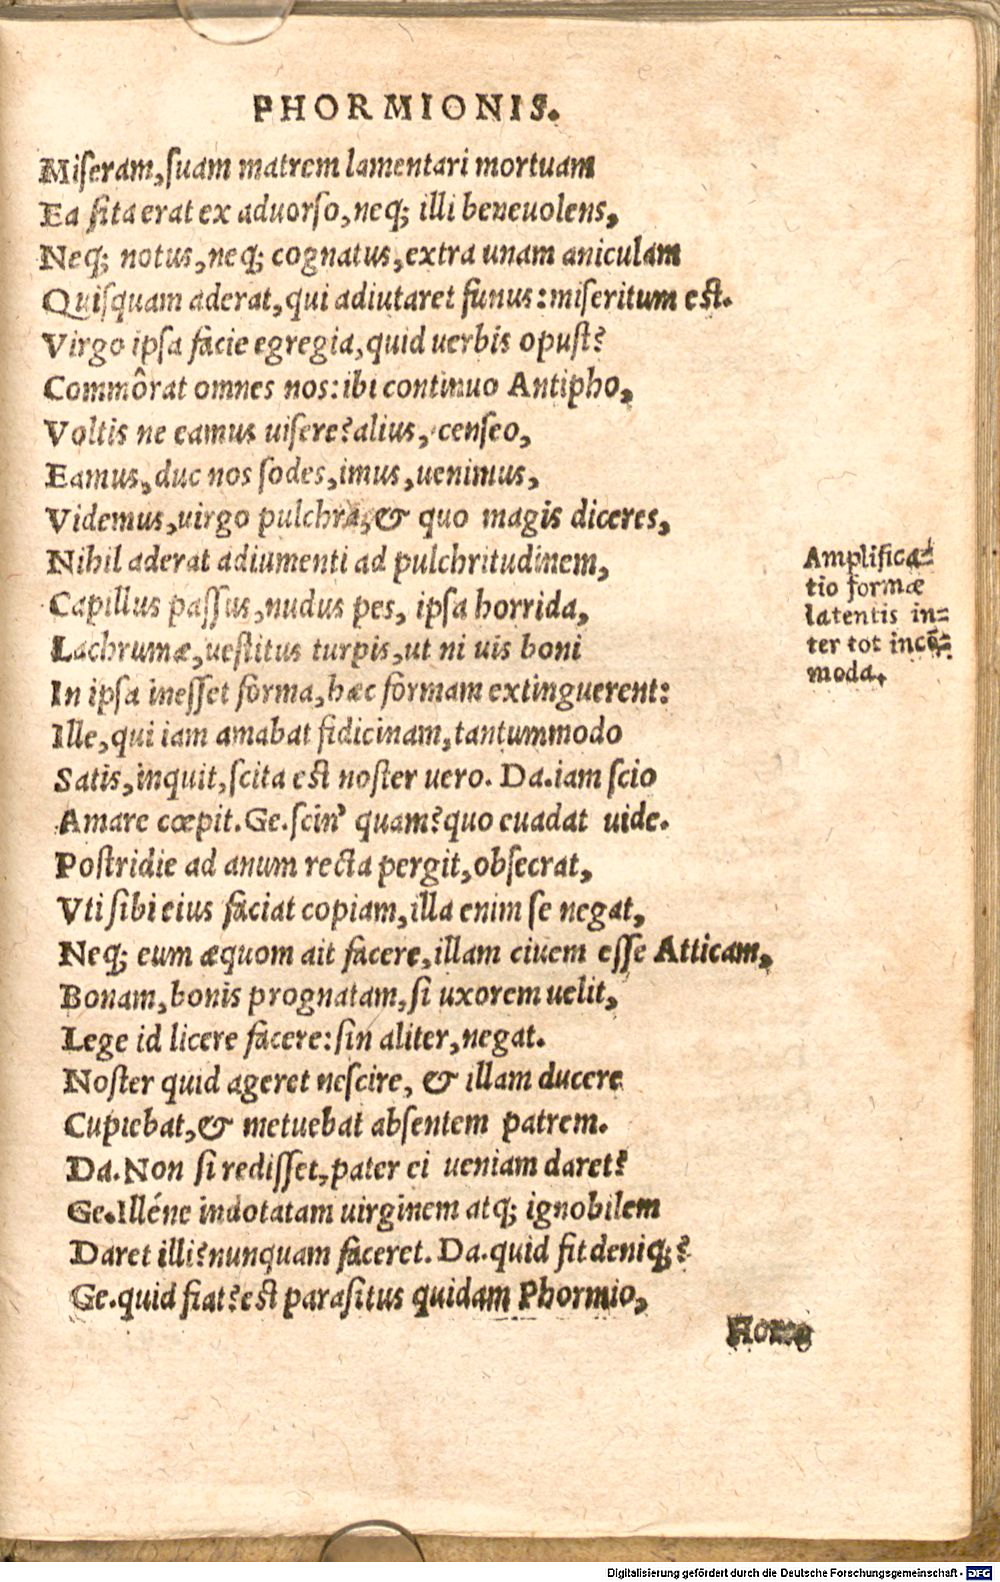 PHORMIONIS.
Miseram, suam matrem lamentari mortuam
Ea sita erat ex aduorso, neq; illi beneuolens,
Neq; notus, neq; cognatus, extra unam aniculam
Quisquam aderat, qui adiutaret funus: miseritum est.
Virgo ipsa facie egregia, quid uerbis opust?
Commôrat omnes nos: ibi continuo Antipho,
Voltis ne eamus uisere? alius, censeo,
Eamus, duc nos sodes, imus, uenimus,
Videmus, uirgo pulchra, & quo magis diceres,
Nihil aderat adiumenti ad pulchritudinem,
Capillus passus, nudus pes, ipsa horrida,
Lachrumæ, uestitus turpis, ut ni uis boni
In ipsa inesset forma, hæc formam extinguerent:
Ille, qui iam amabat fidicinam, tantummodo
Satis, inquit, scita est noster uero. Da. iam scio
Amare cœpit. Ge. scin' quam? quo euadat uide.
Postridie ad anum recta pergit, obsecrat,
Vti sibi eius faciat copiam, illa enim se negat,
Neq; eum æquom ait facere, illam ciuem esse Atticam,
Bonam, bonis prognatam, si uxorem uelit,
Lege id licere facere: sin aliter, negat.
Noster quid ageret nescire, & illam ducere
Cupiebat, & metuebat absentem patrem.
Da. Non si redisset, pater ei ueniam daret?
Ge. Illéne indotatam uirginem atq; ignobilem
Daret illi? nunquam faceret. Da. quid fit deniq;?
Ge. quid fiat? est parasitus quidam Phormio,
Homo
Amplifica=
tio formæ
latentis in=
ter tot incō=
moda.
Digitalisierung gefördert durch die Deutsche Forschungsgemeinschaft - DFG